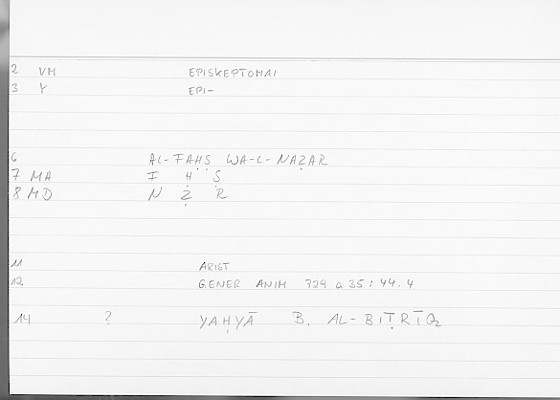 2 VM EPISKEPTOMAI
3 Y EPI-
6 AL-FAḤṢ WA-L-NAẒAR
7 MA I Ḥ Ṣ
8 MD N Ẓ R
11 ARIST
12 GENER ANIM 729 a 35 : 44.4
14 ? YAḤYĀ B. AL-BIṬRĪQ